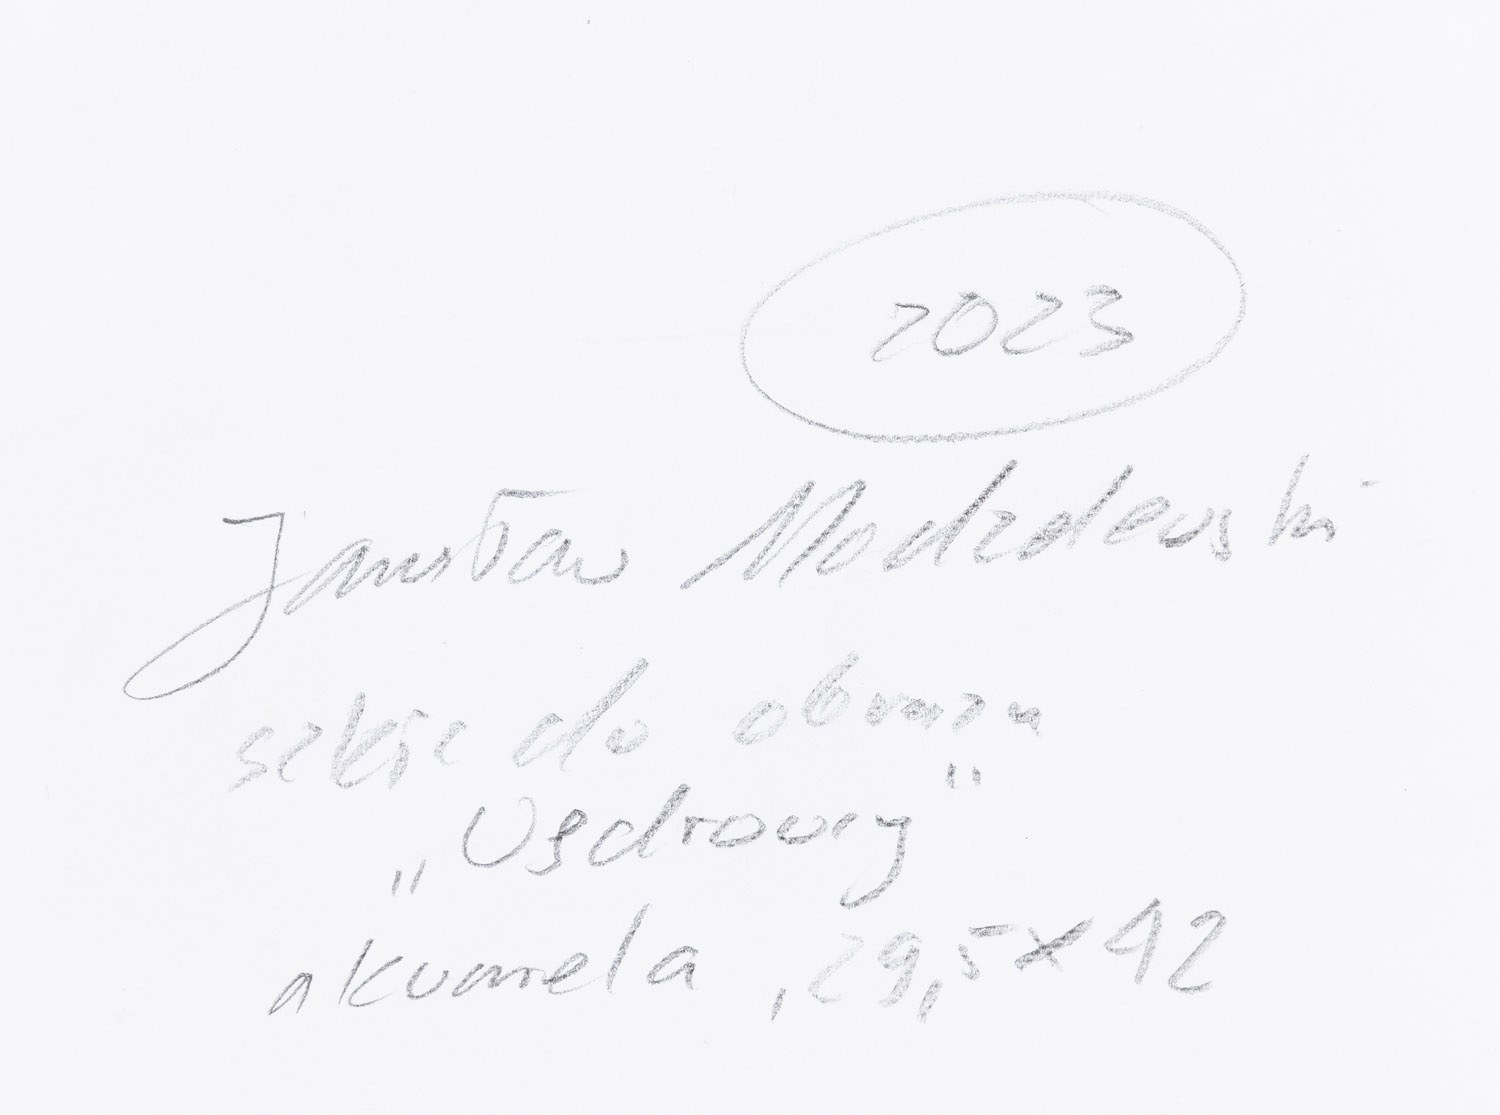 2023
Jarosław Modzelewski
szkic do obrazu
„Usdrowy"
akwarela, 29,5x42